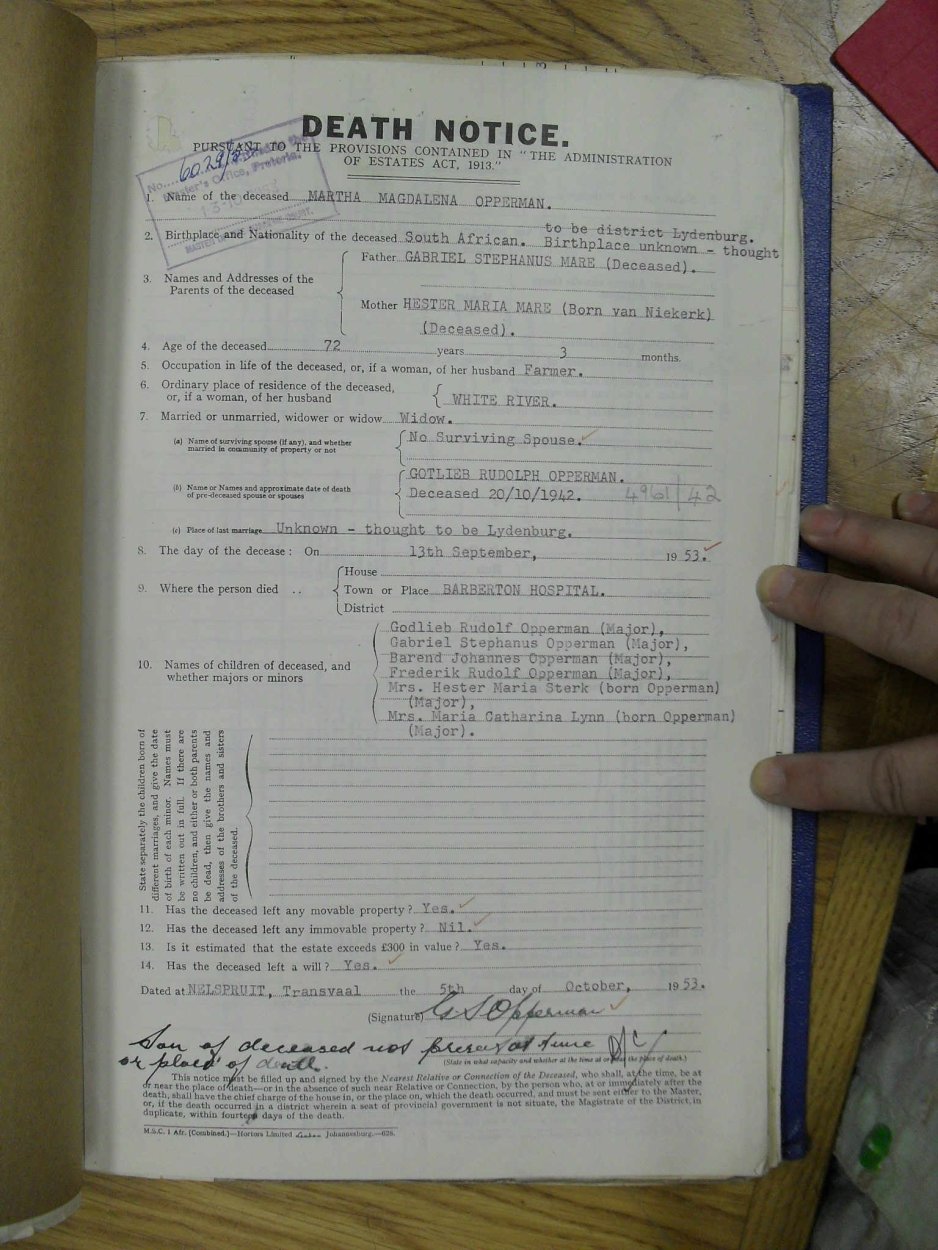 DEATH NOTICE.
PURSUANT TO THE PROVISIONS CONTAINED IN "THE ADMINISTRATION
OF ESTATES ACT, 1913."
No. 6029/53
Master's Office, Pretoria.
1. Name of the deceased MARTHA MAGDALENA OPPERMAN.
to be district Lydenburg.
2. Birthplace and Nationality of the deceased South African. Birthplace unknown - thought
3. Names and Addresses of the Parents of the deceased
Father GABRIEL STEPHANUS MARE (Deceased).
Mother HESTER MARIA MARE (Born van Niekerk)
(Deceased).
4. Age of the deceased 72 years 3 months.
5. Occupation in life of the deceased, or, if a woman, of her husband Farmer.
6. Ordinary place of residence of the deceased,
or, if a woman, of her husband WHITE RIVER.
7. Married or unmarried, widower or widow Widow.
(a) Name of surviving spouse (if any), and whether
married in community of property or not
No Surviving Spouse.
GOTLIEB RUDOLPH OPPERMAN.
(b) Name or Names and approximate date of death
of pre-deceased spouse or spouses
Deceased 20/10/1942. 4961/42
(c) Place of last marriage Unknown - thought to be Lydenburg.
8. The day of the decease: On 13th September, 1953.
9. Where the person died ..
House
Town or Place BARBERTON HOSPITAL.
District
10. Names of children of deceased, and
whether majors or minors
Godlieb Rudolf Opperman (Major),
Gabriel Stephanus Opperman (Major),
Barend Johannes Opperman (Major),
Frederik Rudolf Opperman (Major),
Mrs. Hester Maria Sterk (born Opperman)
(Major),
Mrs. Maria Catharina Lynn (born Opperman)
(Major).
State separately the children born of
different marriages, and give the date
of birth of each minor. Names must
be written out in full. If there are
no children, and either or both parents
be dead, then give the names and
addresses of the brothers and sisters
of the deceased.
11. Has the deceased left any movable property? Yes.
12. Has the deceased left any immovable property? Nil.
13. Is it estimated that the estate exceeds £300 in value? Yes.
14. Has the deceased left a will? Yes.
Dated at NELSPRUIT, Transvaal the 5th day of October, 1953.
(Signature) G S Opperman
Son of deceased not present at time
or place of death.
(State in what capacity and whether at the time at or near the place of death.)
This notice must be filled up and signed by the Nearest Relative or Connection of the Deceased, who shall, at the time, be at
or near the place of death—or in the absence of such near Relative or Connection, by the person who, at or immediately after the
death, shall have the chief charge of the house in, or the place on, which the death occurred, and must be sent either to the Master,
or, if the death occurred in a district wherein a seat of provincial government is not situate, the Magistrate of the District, in
duplicate, within fourteen days of the death.
M.S.C. 1 Afr. [Combined.]—Hortors Limited Johannesburg.—628.